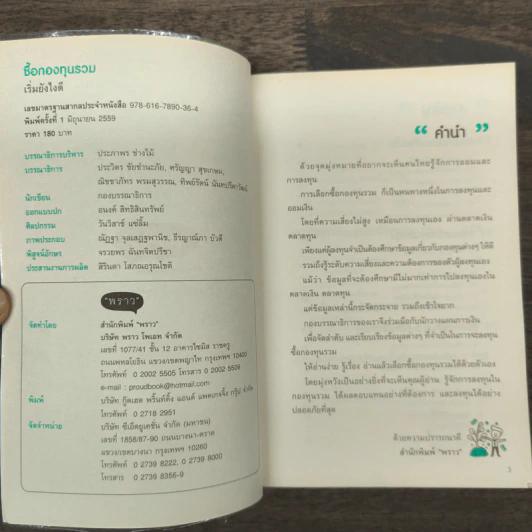 ซื้อกองทุนรวม
เริ่มยังไงดี
เลขมาตรฐานสากลประจำหนังสือ 978-616-7890-36-4
พิมพ์ครั้งที่ 1 มิถุนายน 2559
ราคา 180 บาท
บรรณาธิการบริหาร ประภาพร ช่างไม้
บรรณาธิการ ประวิตร ชัยชำนะภัย, หรัญญา สุขเกษม,
ณิชชาภัทร พรมสุวรรณ, ทิพย์รัตน์ นันทปรีดาวัฒน์
นักเขียน กองบรรณาธิการ
ออกแบบปก อนงค์ สิทธิสินทรัพย์
ศิลปกรรม วันวิสาข์ แซ่ลิ้ม
ภาพประกอบ ณัฏฐา จุลเสฏฐพานิช, ธีรญาณ์ภา บัวดี
พิสูจน์อักษร จรวยพร ฉันทจิตปรีชา
ประสานงานการผลิต สิรินดา โสภณอรุณโชติ
"พราว"
จัดทำโดย สำนักพิมพ์ "พราว"
บริษัท พราว โพเอท จำกัด
เลขที่ 1077/41 ชั้น 12 อาคารโฆมิส ราชครู
ถนนพหลโยธิน แขวง/เขตพญาไท กรุงเทพฯ 10400
โทรศัพท์ 0 2002 5505 โทรสาร 0 2002 5506
e-mail : proudbook@hotmail.com
พิมพ์ บริษัท กู๊ดเฮด พริ้นท์ติ้ง แอนด์ แพคเกจจิ้ง กรุ๊ป จำกัด
โทรศัพท์ 0 2718 2951
จัดจำหน่าย บริษัท ซีเอ็ดยูเคชั่น จำกัด (มหาชน)
เลขที่ 1858/87-90 ถนนบางนา-ตราด
แขวง/เขตบางนา กรุงเทพฯ 10260
โทรศัพท์ 0 2739 8222, 0 2739 8000
โทรสาร 0 2739 8356-9
“ คำนำ ”
ด้วยจุดมุ่งหมายที่อยากจะเห็นคนไทยรู้จักการออมและ
การลงทุน
การเลือกซื้อกองทุนรวม ก็เป็นหนทางหนึ่งในการลงทุนและ
ออมเงิน
โดยที่ความเสี่ยงไม่สูง เหมือนการลงทุนเอง ผ่านตลาดเงิน
ตลาดทุน
เพียงแค่ผู้ลงทุนจำเป็นต้องศึกษาข้อมูลเกี่ยวกับกองทุนต่างๆ ให้ดี
รวมถึงรู้ระดับความเสี่ยงและความต้องการของตัวผู้ลงทุนเอง
แม้ว่า ข้อมูลที่จะต้องศึกษามีไม่มากเท่าการไปลงทุนเองใน
ตลาดเงิน ตลาดทุน
แต่ข้อมูลเหล่านี้กระจัดกระจาย รวมถึงเข้าใจยาก
กองบรรณาธิการของเราจึงร่วมมือกับนักวางแผนการเงิน
เพื่อจัดลำดับ และเรียบเรียงข้อมูลต่างๆ ที่จำเป็นในการจะลงทุน
ซื้อกองทุนรวม
ให้อ่านง่าย รู้เรื่อง อ่านแล้วเลือกซื้อกองทุนรวมได้ด้วยตัวเอง
โดยมุ่งหวังเป็นอย่างยิ่งที่จะเห็นคุณผู้อ่าน รู้จักการลงทุนใน
กองทุนรวม ได้ผลตอบแทนอย่างที่ต้องการ และลงทุนได้อย่าง
ปลอดภัยที่สุด
ด้วยความปรารถนาดี
สำนักพิมพ์ "พราว"
3